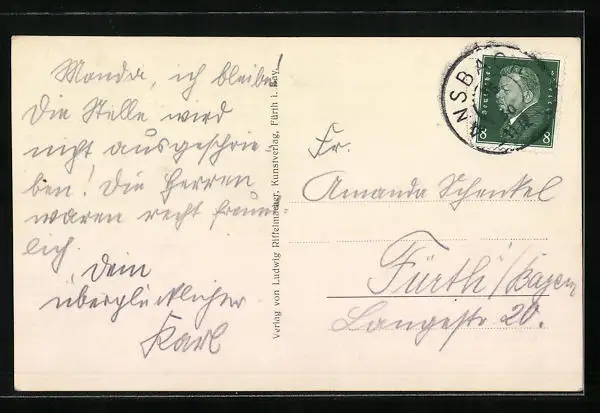 Manda, ich bleibe!
Die Stelle wird
nicht ausgeschrie-
ben! Die Herren
waren recht freund-
lich.
Dein
überglücklicher
Karl
Verlag von Ludwig Riffelmacher, Kunstverlag, Fürth i. Bay.
NSBA
Deutsches Reich
8 8
Fr.
Amanda Schenkel
Fürth/Bayern
Langestr 20.